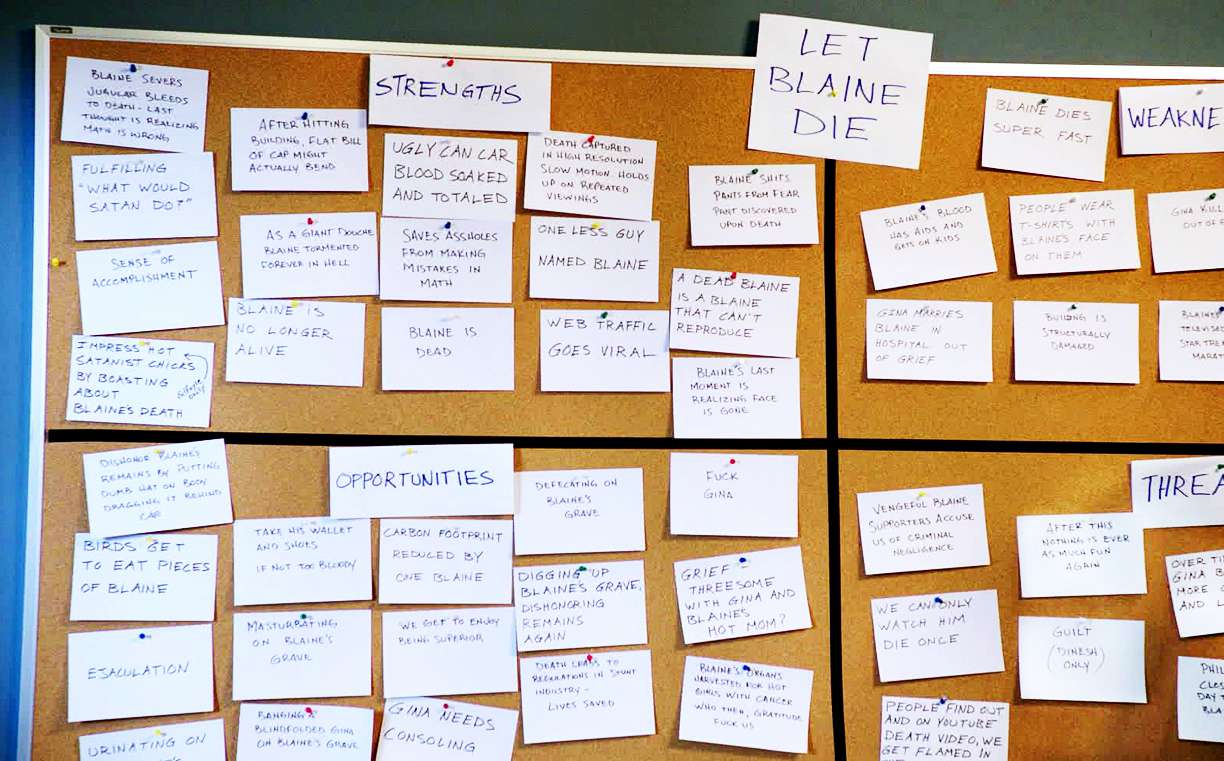 LET
BLAINE
DIE
STRENGTHS
BLAINE SEVERS
JUGULAR BLEEDS
TO DEATH - LAST
THOUGHT IS REALIZING
MATH IS WRONG
AFTER HITTING
BUILDING, FLAT BILL
OF CAP MIGHT
ACTUALLY BEND
UGLY CAN CAR
BLOOD SOAKED
AND TOTALED
DEATH CAPTURED
IN HIGH RESOLUTION
SLOW MOTION. HOLDS
UP ON REPEATED
VIEWINGS
BLAINE SHITS
PANTS FROM FEAR
DISCOVERED
UPON DEATH
FULFILLING
"WHAT WOULD
SATAN DO?"
AS A GIANT DOUCHE
BLAINE TORMENTED
FOREVER IN HELL
SAVES ASSHOLES
FROM MAKING
MISTAKES IN
MATH
ONE LESS GUY
NAMED BLAINE
A DEAD BLAINE
IS A BLAINE
THAT CAN'T
REPRODUCE
SENSE OF
ACCOMPLISHMENT
BLAINE IS
NO LONGER
ALIVE
BLAINE IS
DEAD
WEB TRAFFIC
GOES VIRAL
BLAINE'S LAST
MOMENT IS
REALIZING FACE
IS GONE
IMPRESS HOT
SATANIST CHICKS
BY BOASTING
ABOUT
BLAINE'S DEATH
ONLY
WEAKNE
BLAINE DIES
SUPER FAST
BLAINE'S BLOOD
HAS AIDS AND
GETS ON KIDS
PEOPLE WEAR
T-SHIRTS WITH
BLAINE'S FACE
ON THEM
GINA KILL
OUT OF
GINA MARRIES
BLAINE IN
HOSPITAL OUT
OF GRIEF
BUILDING IS
STRUCTURALLY
DAMAGED
BLAINE'
TELEVISE
STAR TRE
MARAT
OPPORTUNITIES
DISHONOR BLAINE'S
REMAINS BY PUTTING
DUMB HAT ON BODY
DRAGGING IT BEHIND
CAR
TAKE HIS WALLET
AND SHOES
IF NOT TOO BLOODY
CARBON FOOTPRINT
REDUCED BY
ONE BLAINE
DEFECATING ON
BLAINE'S
GRAVE
FUCK
GINA
BIRDS GET
TO EAT PIECES
OF BLAINE
MASTURBATING
ON BLAINE'S
GRAVE
WE GET TO ENJOY
BEING SUPERIOR
DIGGING UP
BLAINE'S GRAVE,
DISHONORING
REMAINS
AGAIN
GRIEF
THREESOME
WITH GINA AND
BLAINE'S
HOT MOM?
EJACULATION
BANGING A
BLINDFOLDED GINA
ON BLAINE'S GRAVE
GINA NEEDS
CONSOLING
DEATH LEADS TO
REGULATIONS IN STUNT
INDUSTRY -
LIVES SAVED
BLAINE'S ORGANS
HARVESTED FOR HOT
GIRLS WITH CANCER
WHO THEN, GRATITUDE
FUCK US
URINATING ON
THREA
VENGEFUL BLAINE
SUPPORTERS ACCUSE
US OF CRIMINAL
NEGLIGENCE
AFTER THIS
NOTHING IS EVER
AS MUCH FUN
AGAIN
OVER TI
GINA B
MORE
AND L
WE CAN ONLY
WATCH HIM
DIE ONCE
GUILT
(DINESH)
ONLY
PHIL
CLOS
DAY
BLA
PEOPLE FIND OUT
AND ON YOUTUBE
DEATH VIDEO, WE
GET FLAMED IN